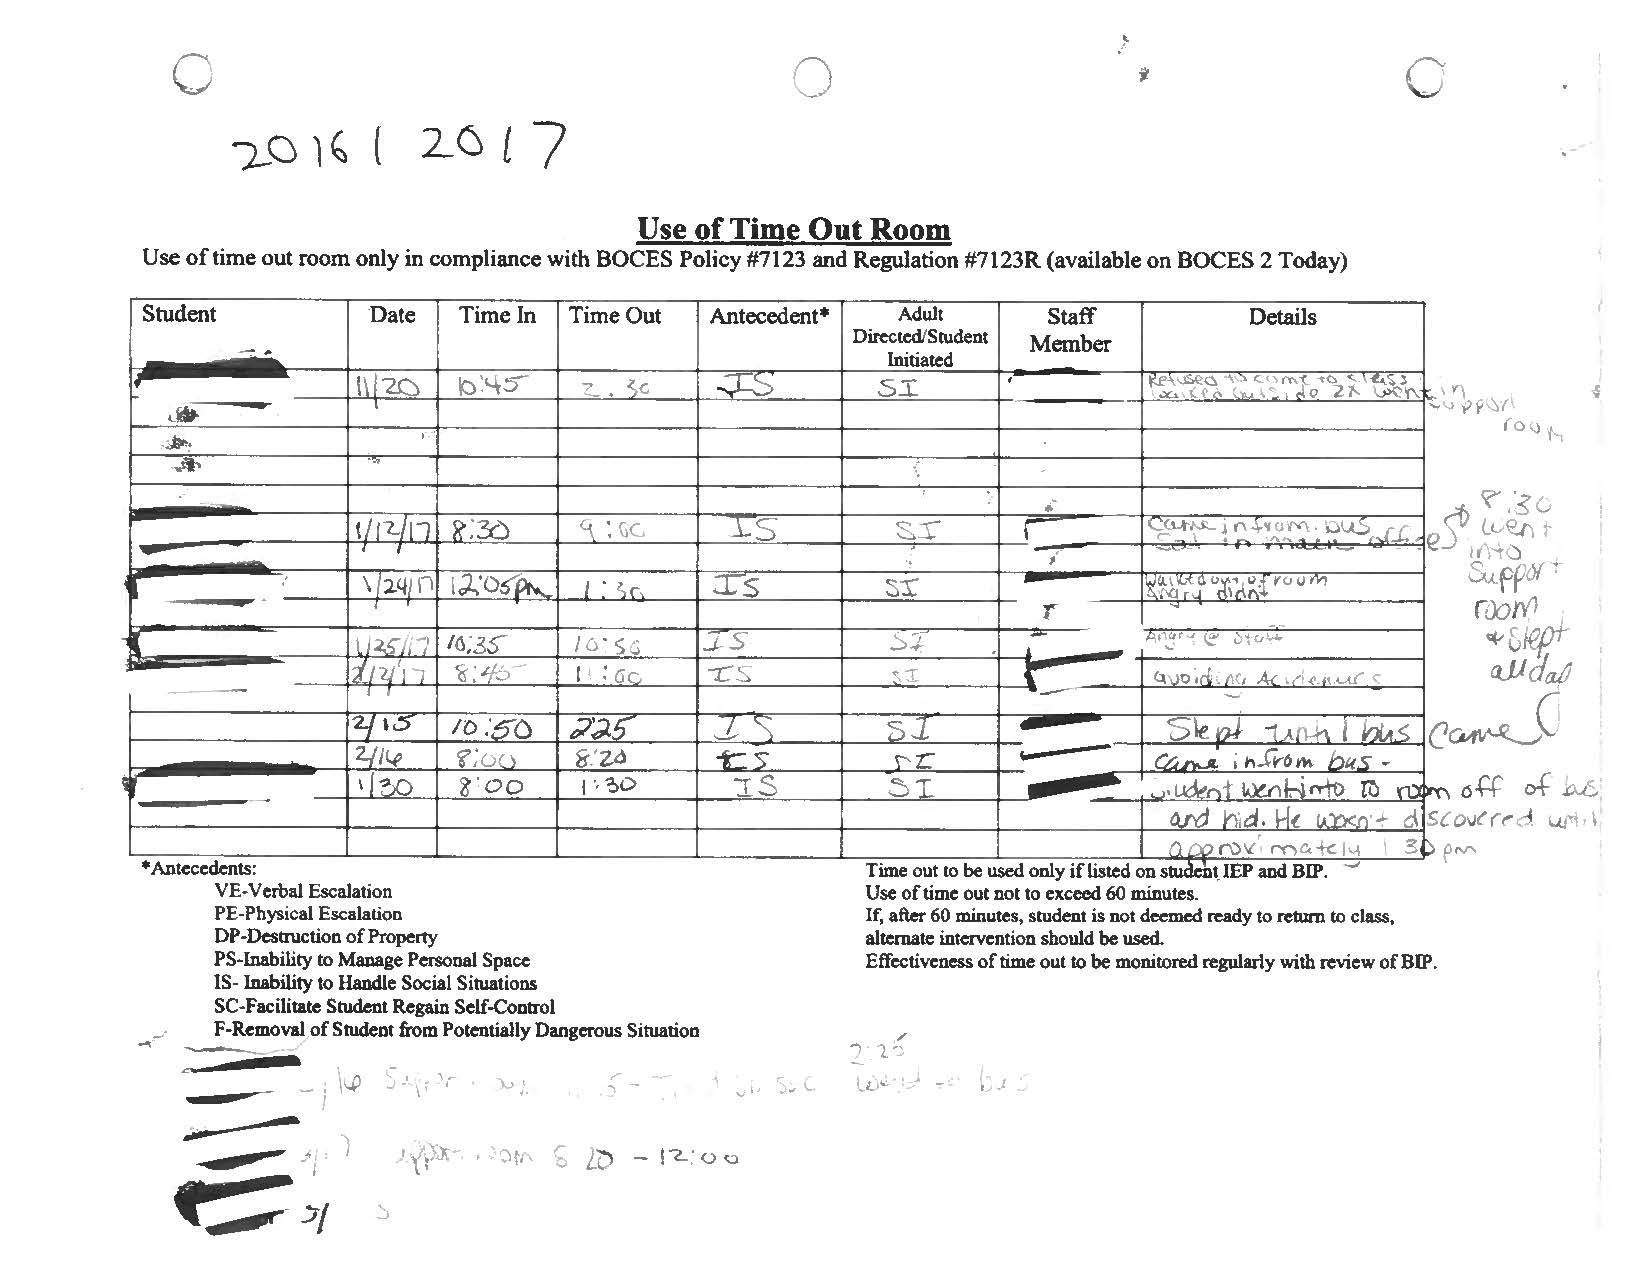 2016 / 2017
Use of Time Out Room
Use of time out room only in compliance with BOCES Policy #7123 and Regulation #7123R (available on BOCES 2 Today)
Student Date Time In Time Out Antecedent* Adult Directed/Student Initiated Staff Member Details
11/20 10:45 2:30 IS SI Refused to come to class
walked outside 2x went in
support
room
1/12/17 8:30 9:00 IS SI Came in from bus
Sat in main office
8:30
went
into
support
room
* slept
all day
1/24/17 12:05pm 1:30 IS SI Walked out of room
Angry didn't
1/25/17 10:35 10:50 IS SI Angry @ staff
2/2/17 8:45 11:00 IS SI avoiding
2/15 10:50 225 IS SI Slept until bus came
2/16 8:00 8:20 IS SI came in from bus -
1/30 8:00 1:30 IS SI Student went into TO room off of bus
and hid. He wasn't discovered until
approximately 1 30 pm
*Antecedents:
VE-Verbal Escalation
PE-Physical Escalation
DP-Destruction of Property
PS-Inability to Manage Personal Space
IS- Inability to Handle Social Situations
SC-Facilitate Student Regain Self-Control
F-Removal of Student from Potentially Dangerous Situation
Time out to be used only if listed on student IEP and BIP.
Use of time out not to exceed 60 minutes.
If, after 60 minutes, student is not deemed ready to return to class,
alternate intervention should be used.
Effectiveness of time out to be monitored regularly with review of BIP.
2:25
went to bus
room 8 20 - 12:00